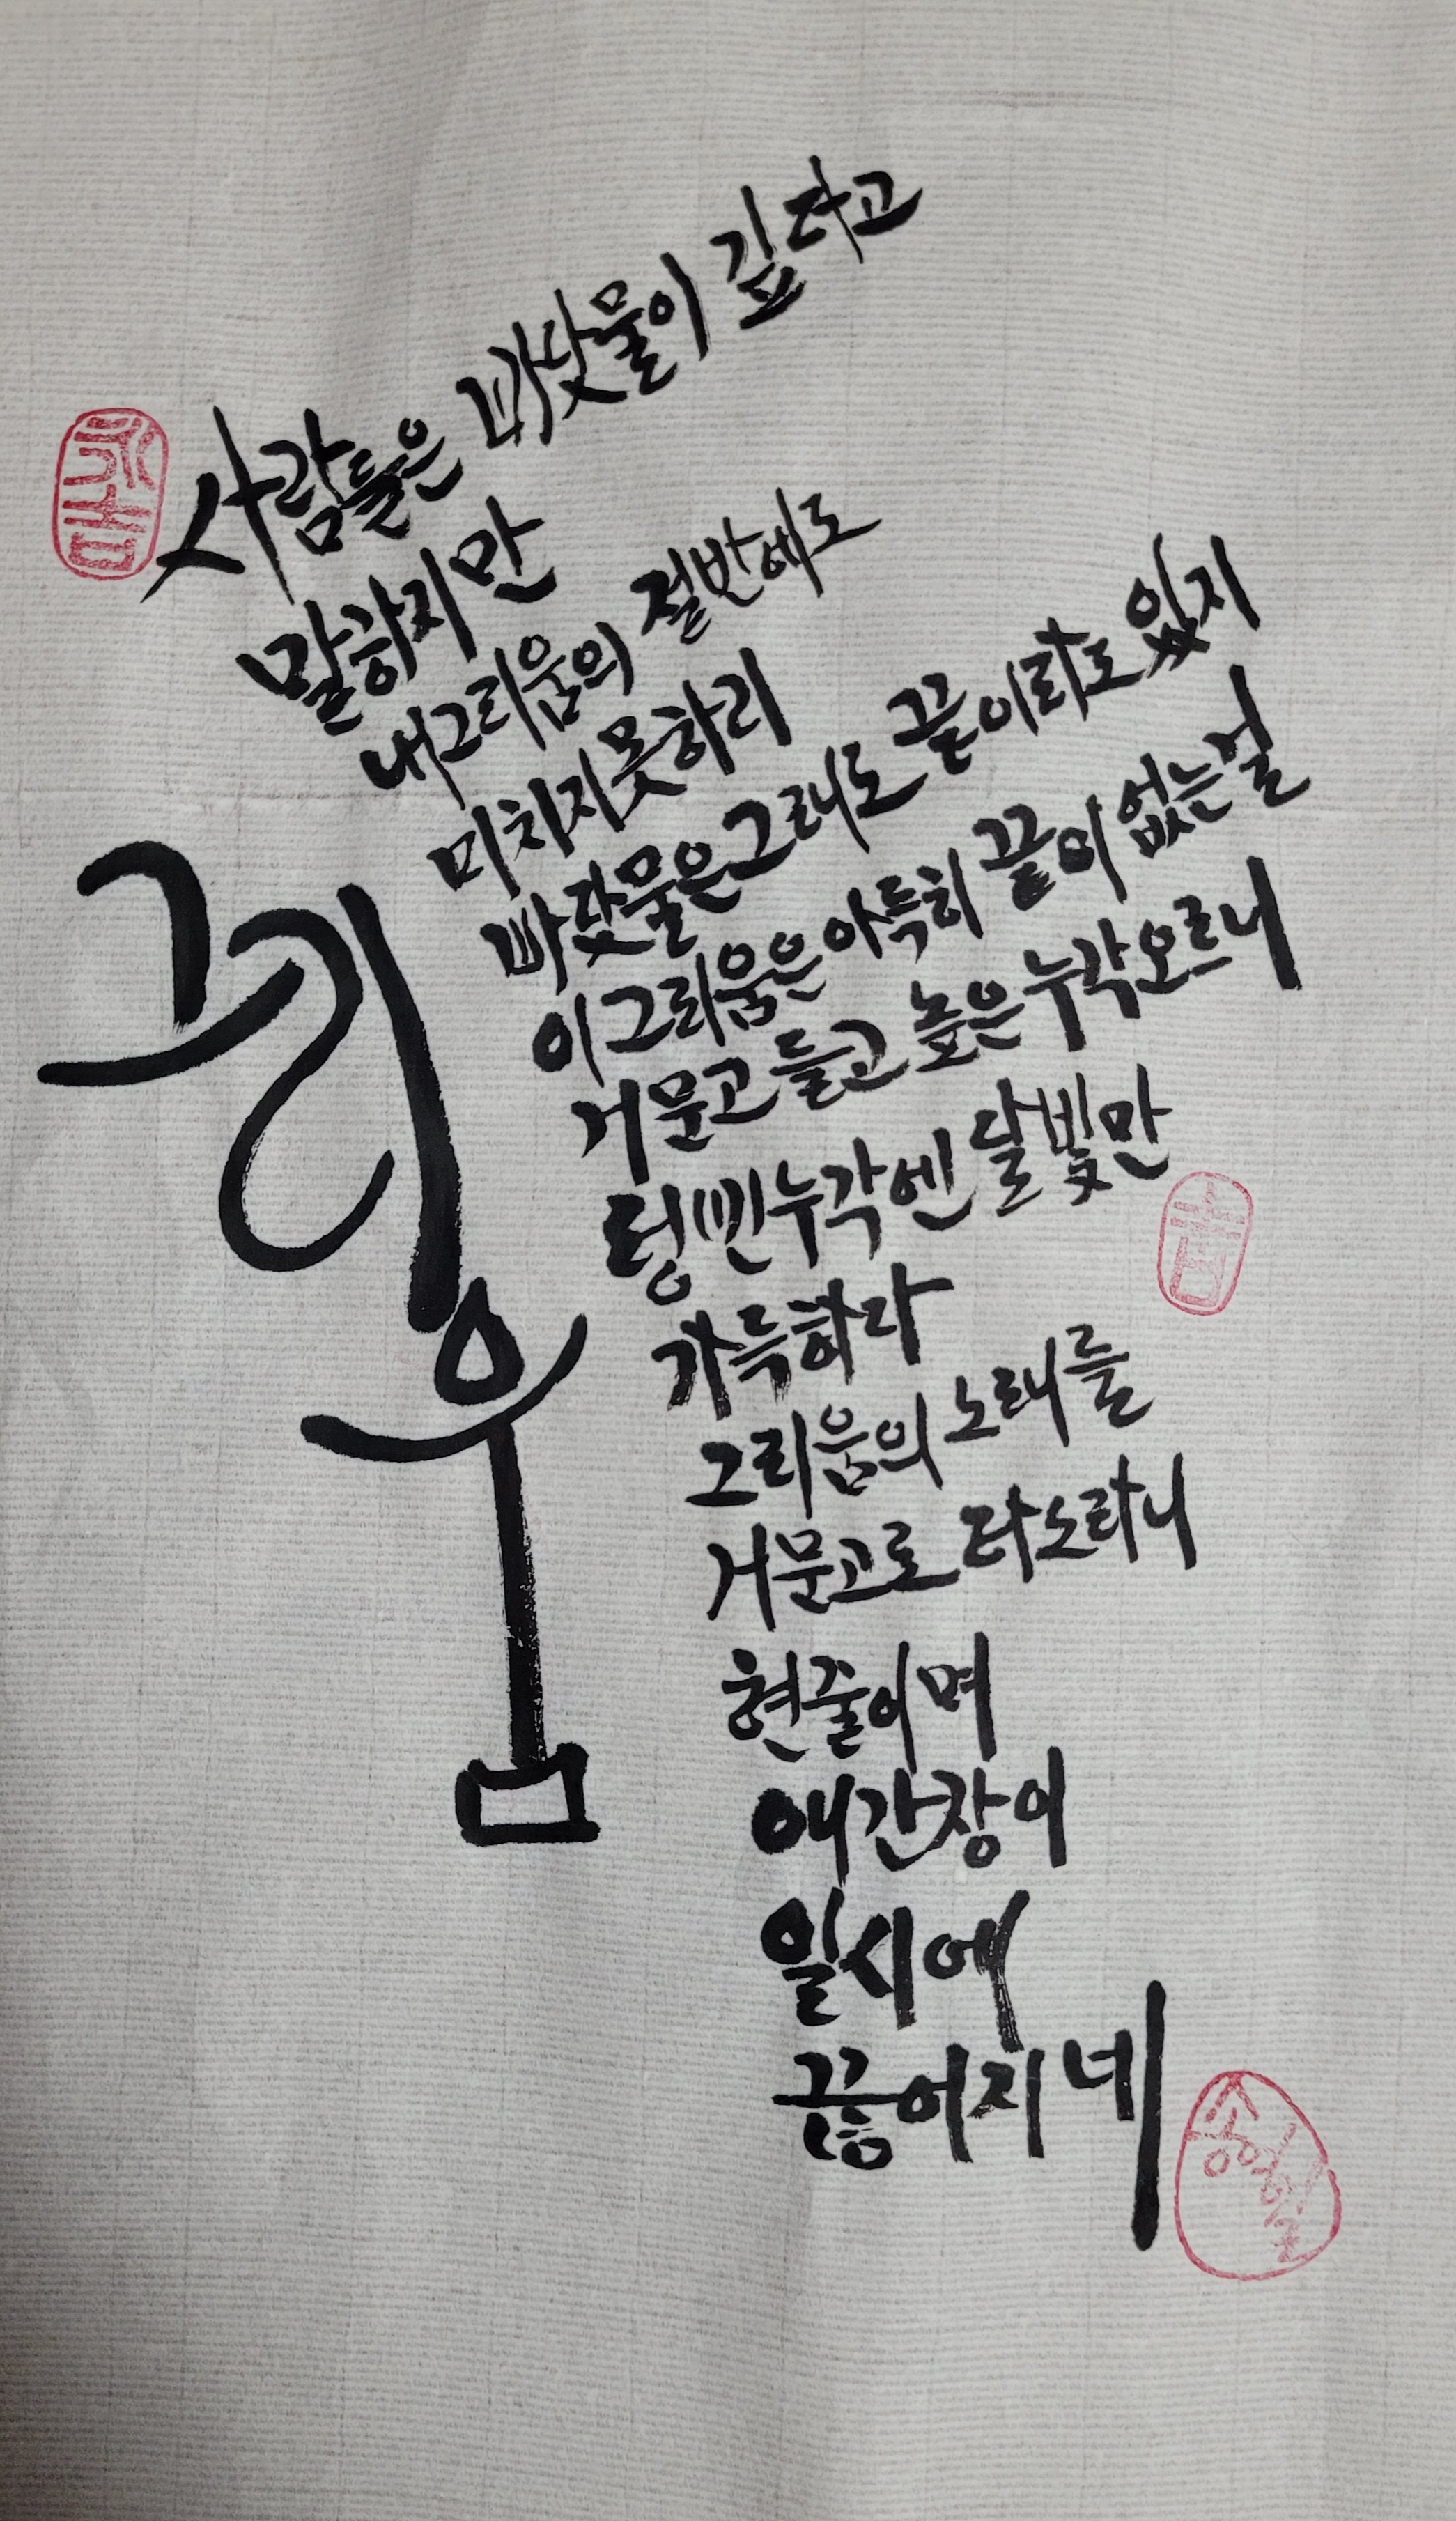 그리움
사람들은 바닷물이 깊다고
말하지만
내그리움의 절반에도
미치지못하리
바닷물은그래도 끝이라도있지
이그리움은아득히 끝이없는걸
거문고들고 높은누각오르니
텅빈누각엔달빛만
가득하라
그리움의 노래를
거문고로 타노라니
현줄이며
애간장이
일시에
끊어지네